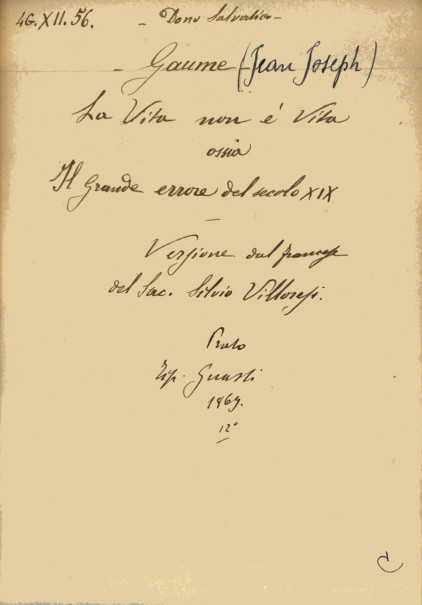 4G.XII.56. - Dono Salvatico -
- Gaume (Jean Joseph)
La Vita non é Vita
ossia
Il Grande errore del secolo XIX
Versione dal francese
del Sac. Silvio Villoresi.
Prato
Tip. Guasti
1869.
12°
C